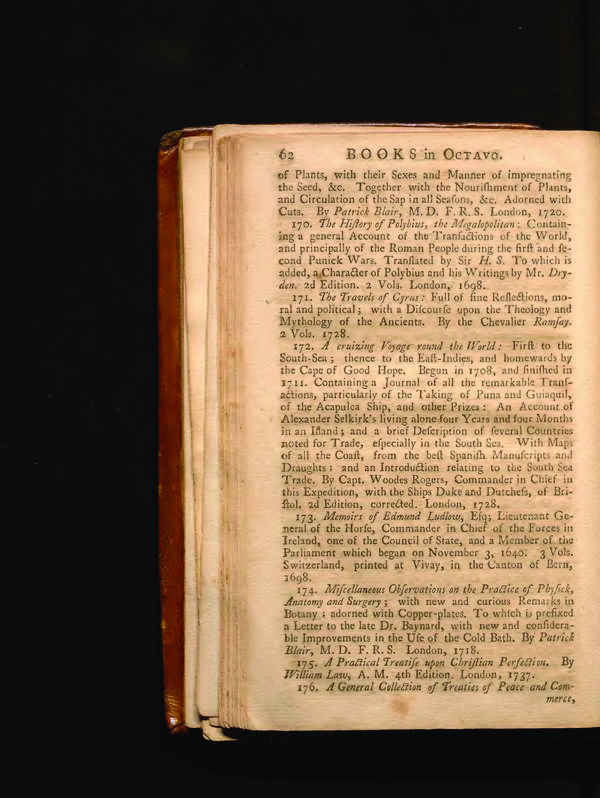 62 BOOKS in OCTAVO.
of Plants, with their Sexes and Manner of impregnating
the Seed, &c. Together with the Nouriſhment of Plants,
and Circulation of the Sap in all Seaſons, &c. Adorned with
Cuts. By Patrick Blair, M. D. F. R. S. London, 1720.
170. The Hiſtory of Polybius, the Megalopolitan: Contain-
ing a general Account of the Tranſactions of the World,
and principally of the Roman People during the firſt and ſe-
cond Punick Wars. Tranſlated by Sir H. S. To which is
added, a Character of Polybius and his Writings by Mr. Dry-
den. 2d Edition. 2 Vols. London, 1698.
171. The Travels of Cyrus: Full of fine Reflections, mo-
ral and political; with a Diſcourſe upon the Theology and
Mythology of the Ancients. By the Chevalier Ramſay.
2 Vols. 1728.
172. A cruizing Voyage round the World: Firſt to the
South-Sea; thence to the Eaſt-Indies, and homewards by
the Cape of Good Hope. Begun in 1708, and finiſhed in
1711. Containing a Journal of all the remarkable Tranſ-
actions, particularly of the Taking of Puna and Guiaquil,
of the Acapulca Ship, and other Prizes: An Account of
Alexander Selkirk's living alone four Years and four Months
in an Iſland; and a brief Deſcription of ſeveral Countries
noted for Trade, eſpecially in the South Sea. With Maps
of all the Coaſt, from the beſt Spaniſh Manuſcripts and
Draughts: and an Introduction relating to the South Sea
Trade. By Capt. Woodes Rogers, Commander in Chief in
this Expedition, with the Ships Duke and Dutcheſs, of Bri-
ſtol. 2d Edition, corrected. London, 1728.
173. Memoirs of Edmund Ludlow, Eſq; Lieutenant Ge-
neral of the Horſe, Commander in Chief of the Forces in
Ireland, one of the Council of State, and a Member of the
Parliament which began on November 3, 1640. 3 Vols.
Switzerland, printed at Vivay, in the Canton of Bern,
1698.
174. Miſcellaneous Obſervations on the Practice of Phyſick,
Anatomy and Surgery; with new and curious Remarks in
Botany; adorned with Copper-plates. To which is prefixed
a Letter to the late Dr. Baynard, with new and conſidera-
ble Improvements in the Uſe of the Cold Bath. By Patrick
Blair, M. D. F. R. S. London, 1718.
175. A Practical Treatiſe upon Chriſtian Perfection. By
William Law, A. M. 4th Edition. London, 1737.
176. A General Collection of Treaties of Peace and Com-
merce,